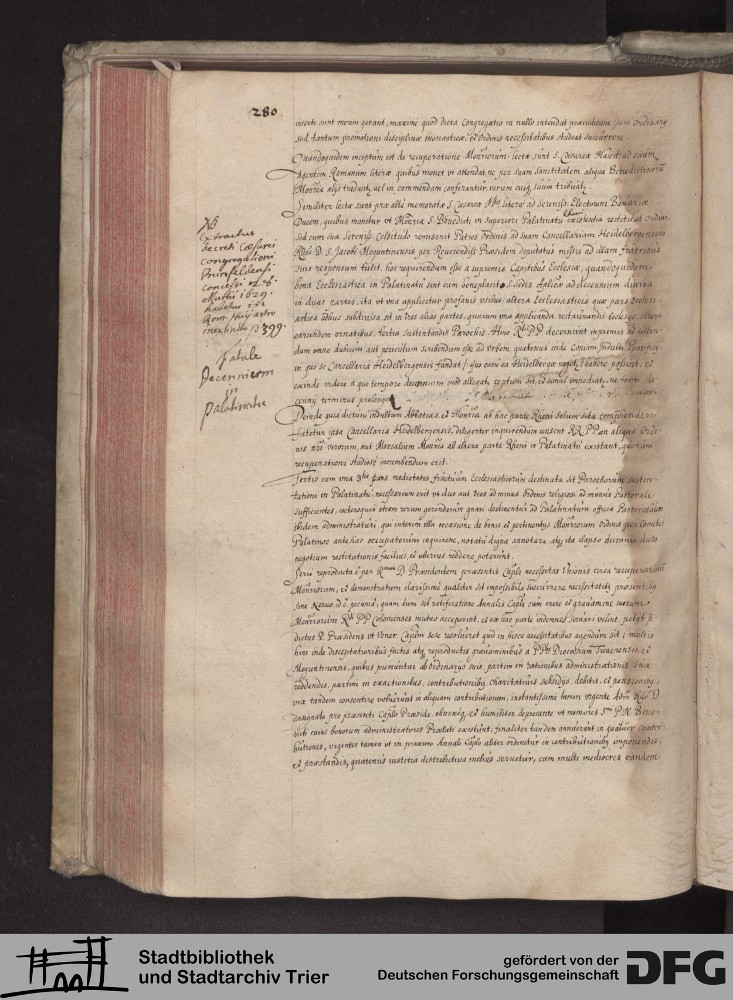 280
inserti sunt morem gerant, maxime quod dicta Congregatio in nullo intendat præiudicare Juri Ordinario
sed tantum promotioni disciplinæ monasticæ, et Ordinis necessitatibus studeat succurrere.
Quandoquidem inceptum est de recuperatione Mon̄riorum: lectæ sunt S. Cæsareæ Maiest. ad suum
Agentem Romanum literæ, quibus monet ut attendat ne per suam Sanctitatem aliqua Benedictinorū
Mon̄ria alijs tradant, vel in commendam conferantur, verum cuiq; suum tribuat.
Similiter lectæ sunt præ alle memoratæ S. Cæsareæ literæ ad Sereniss. Electorem Bavariæ
Ducem, quibus monetur ut Mon̄ria S. Benedicti in superiori Palatinatu existentia restituat Ordini
Sed cum sua Sereniss. Celsitudo remiserit Patres Ordinis ad suam Cancellariam Heidelbergensem
D. S. Jacobi Moguntinensis per Reverendiss. Præsidem deputatus missus ad illam fratribus
suis responsum tulit, hoc requirendum esse a supremis Capitibus Ecclesiæ, quandoquidem
bona Ecclesiastica in Palatinatu sint cum beneplacito S. Sedis Aplicæ ad decennium divisa
in duas partes, ita ut una applicetur profanis usibus, altera Ecclesiasticis quæ pars Ecclesi
astica adhuc subdivisa sit in tres alias partes, quarum una applicanda restaurandis Ecclesijs, altera
earundem ornatibus, tertia sustentandis Parochis. Hinc PP decernunt inprimis ad tollen
dum omne dubium aut periculum scribendum esse ad Urbem, quatenus inde Copiam Indulti Pontificij
in quo se Cancellaria Heidelbergensis fundat habere possint, et
exinde videre a quo tempore decennium cœptum sit, et simul impediat, ne forte de
cennij terminus prolonget
Deinde quia dictum indultum Abbatias et Mon̄ria ab hac parte Rheni solum sita comprehendere
fatetur ipsa Cancellaria Heidelbergensis, diligenter inquirendum censent RR PP an aliqua Ordi
nis nr̄i virorum, aut Monialium Mon̄ria ab altera parte Rheni in Palatinatu existant, quorum
recuperationi studiose incumbendum erit.
Tertio cum una 3tia pars medietatis fructuum Ecclesiasticorum destinata sit Parochorum susten-
tationi in Palatinatu: necessarium erit ut duo aut tres ad minus Ordinis religiosi ad munus Pastorale
sufficientes, cæterorumque etiam rerum gerendarum gnari destinentur ad Palatinatum officia Pastoratuum
ibidem administraturi, qui interim illa occasione de bonis et pertinentijs Mon̄riorum ordinis per Comites
Palatinos antehac occupatorum inquirere, notatu digna annotare, atq; ita elapso decennio dicto
negotium restitutionis facilius, et uberius reddere poterunt.
Serio reproducta è per Rmum D. Præsidentem præsentis Capli necessitas Unionis circa recuperationē
Mon̄riorum, et demonstratum clarissime qualiter sit impossibile succurrere necessitatib; præsentib;
sine nervo id è pecunia, quam dum sub ratificatione Annalis Capli cum onere et gravamine suorum
Mon̄riorum PP Colonienses mutuo acceperint, et ex hac parte indemnes servari velint, petijt p̄
dictus D. Præsidens ut Vener. Caplm sese resolueret quid in hisce necessitatibus agendum sit; multis
hinc inde disceptationibus factis atq; reproductis gravaminibus a PPbus Diœcesium Trevirensis, et
Moguntinensis, quibus premuntur ab ordinarijs suis, partim in rationibus administrationis suæ
reddendis, partim in exactionibus, contributionibq; charitativis subsidijs, debitis, et pensionibq;
vix tandem consentire voluerunt in aliquam contributionem, instantissime tamen urgente Adm. Rdo D.
designato pro præsenti Caplo Præside, obnixeq; et humiliter deprecante ut memores Smi P. N. Bene-
dicti cuius bonorum administratores Prælati existunt: finaliter tandem convenerunt in quatuor contri-
butiones, urgentes tamen ut in proximo Annali Caplo aliter ordinetur in contributionibq; imponendis,
et præstandis, quatenus iustitia distributiva melius servetur, cum multi mediocres eandem
NB
Extractus
decreti Cæsarei
congregationi
Bursfeldensi
concessi
Martij 1629.
habetur in
Rom.
399
fabulæ
Decennium
in
Palatinatu
Stadtbibliothek
und Stadtarchiv Trier
gefördert von der
Deutschen Forschungsgemeinschaft
DFG